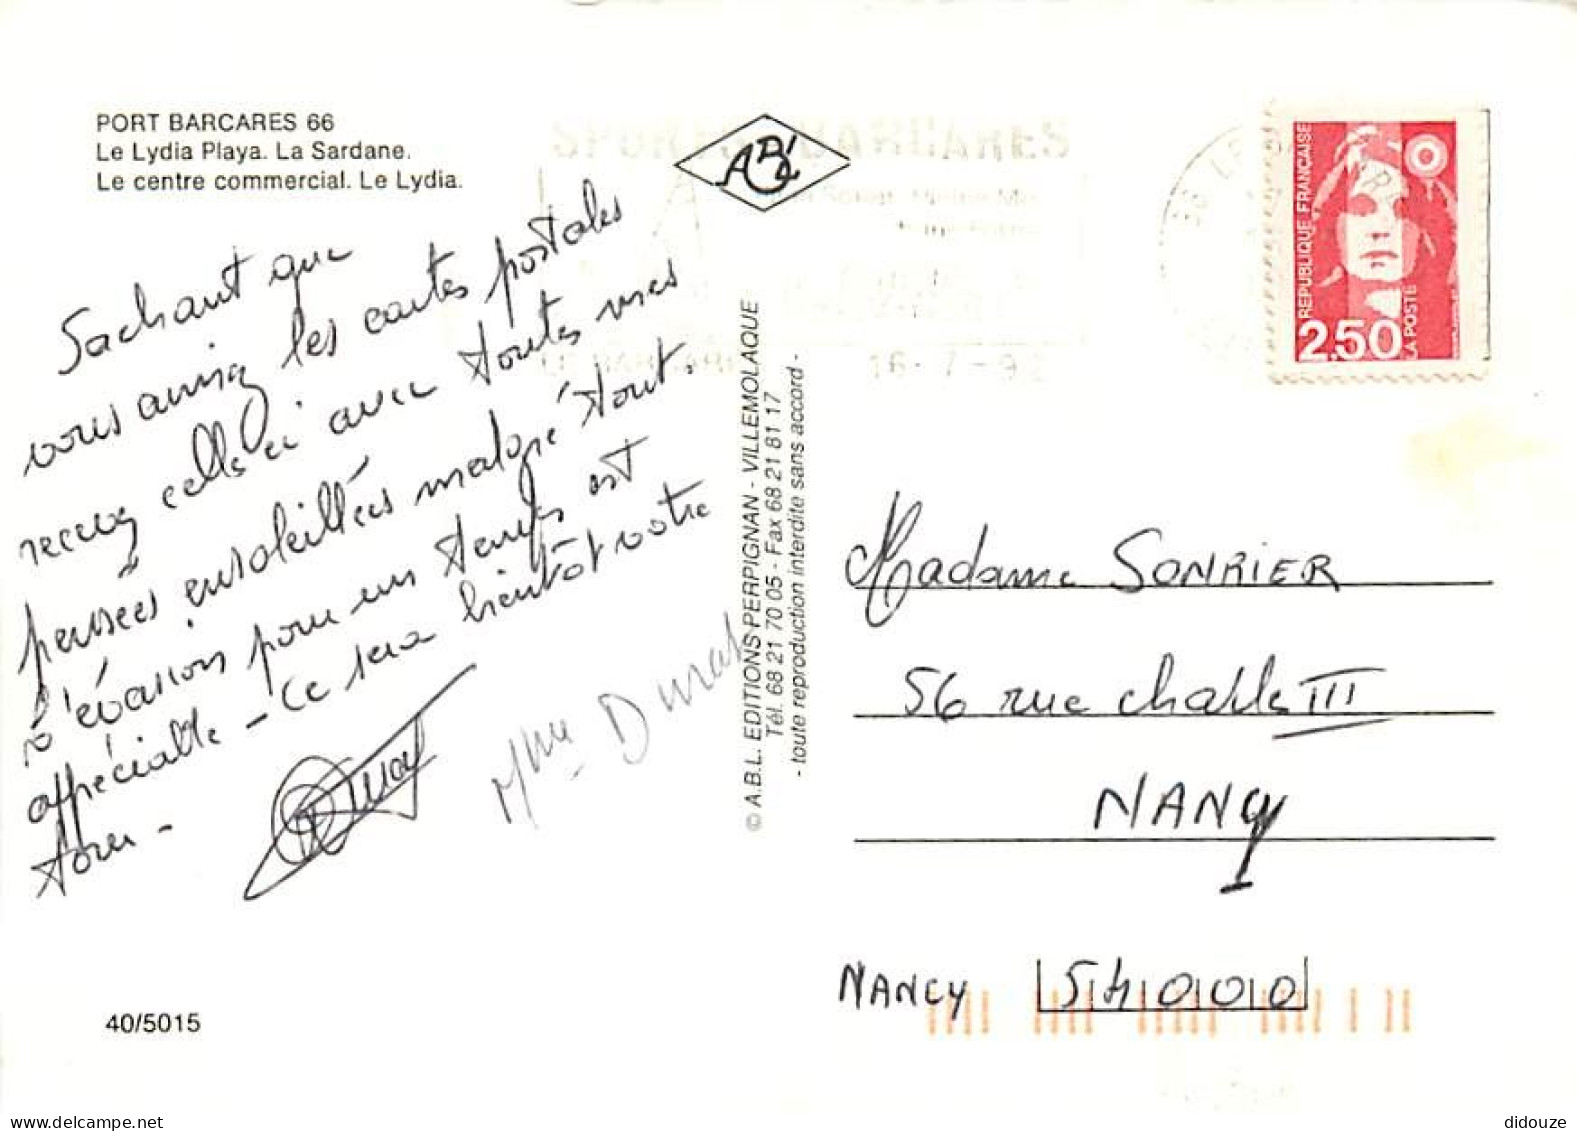 PORT BARCARES 66
Le Lydia Playa. La Sardane.
Le centre commercial. Le Lydia.
Sachant que
vous aimez les cartes postales
recevez celle ci avec toutes mes
pensées ensoleillées malgré tout.
L'évasion pour un temps est
appréciable - Ce sera bientôt votre
tour -
Mme Durat
40/5015
ABL
SPORTS BARCARES
LE BARCARES 16-7-92
© A.B.L. EDITIONS PERPIGNAN - VILLEMOLAQUE
Tél. 68 21 70 05 - Fax 68 21 81 17
- toute reproduction interdite sans accord -
REPUBLIQUE FRANÇAISE
2,50
LA POSTE
Madame SONRIER
56 rue Charles III
NANCY
NANCY 54000
delcampe.net
didouze